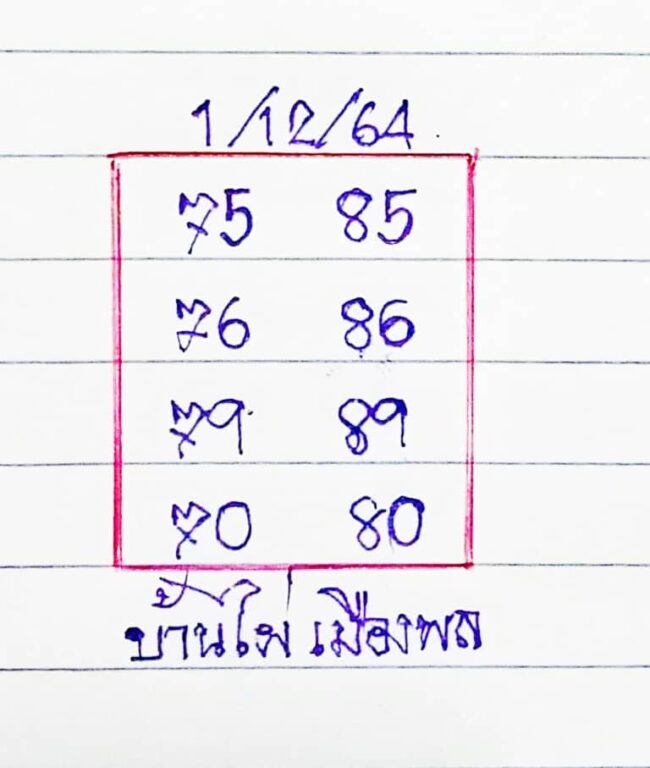 1/12/64
75 85
76 86
79 89
70 80
บ้านไผ่ เมืองพล